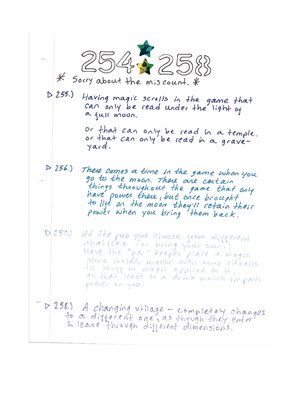 254 258
* Sorry about the miscount. *
▷ 255.) Having magic scrolls in the game that
can only be read under the light of
a full moon.
or that can only be read in a temple.
or that can only be read in a grave-
yard.
▷ 256.) There comes a time in the game when you
go to the moon. There are certain
things throughout the game that only
have power there, but once brought
to life on the moon they'll retain their
power when you bring them back.
▷ 257.) At the pub you choose from different
chalices (or bring your own.)
Have the "bar" keeper place a magic
stone inside, maybe even some
stic magic applied to it,
that leads to a drink
power on you.
▷ 258.) A changing village - completely changes
to a different one, as though they enter
& leave through different dimensions.